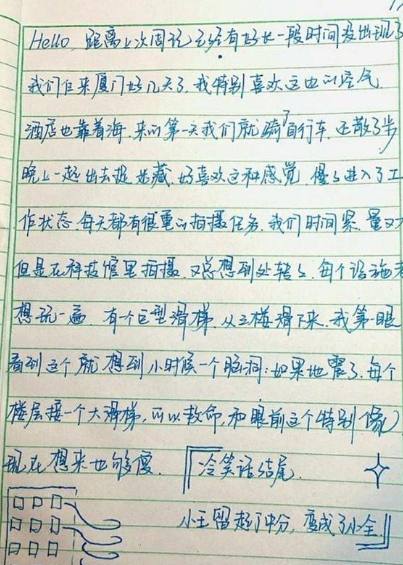 Hello, 距离上次周记已经有好长一段时间没出现了
我们自来厦门好几天了,我特别喜欢这边的空气
酒店也靠着海,来的第一天我们就骑了自行车,还散了步
晚上一起出去捉迷藏,好喜欢这种感觉,慢慢进入了工
作状态,每天都有很重的拍摄任务,我们时间紧,量又大
但是在科技馆里拍摄,又总想到处转转,每个设施都
想玩一遍,有一个巨型滑梯,从三楼滑下来,我第一眼
看到这个就想到小时候一个脑洞:如果地震了,每个
楼层接一个大滑梯,可以救命,和眼前这个特别像)
现在想来也够傻.『冷笑话结尾
小王留起了中分,变成了小全.』